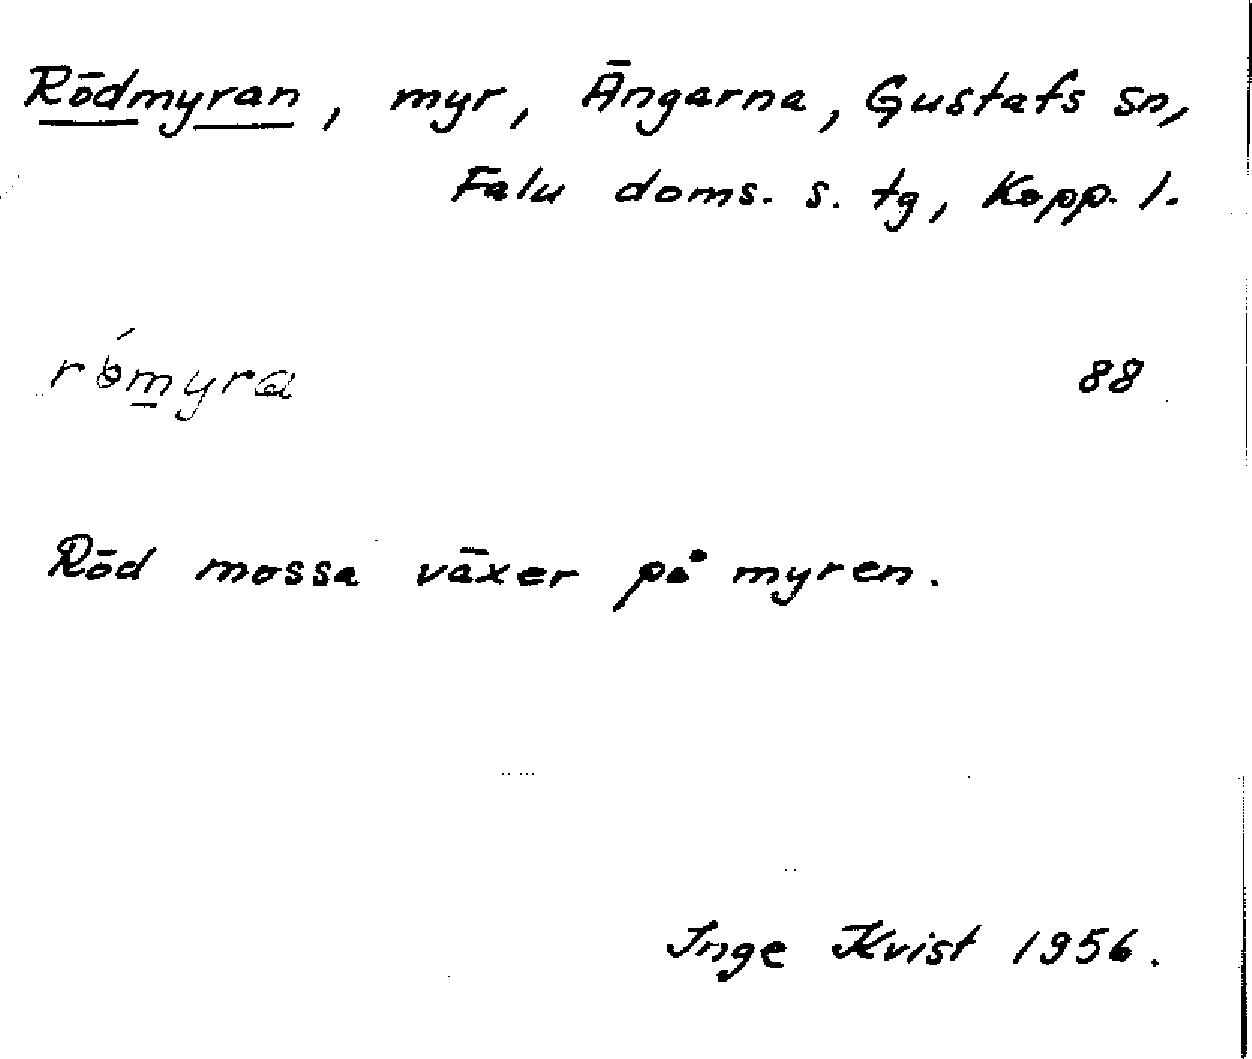 Rödmyran, myr, Ängarna, Gustafs sn,
Falu doms. s. tg, Kopp. l.
88
Röd mossa växer på myren.
Inge Kvist 1956.